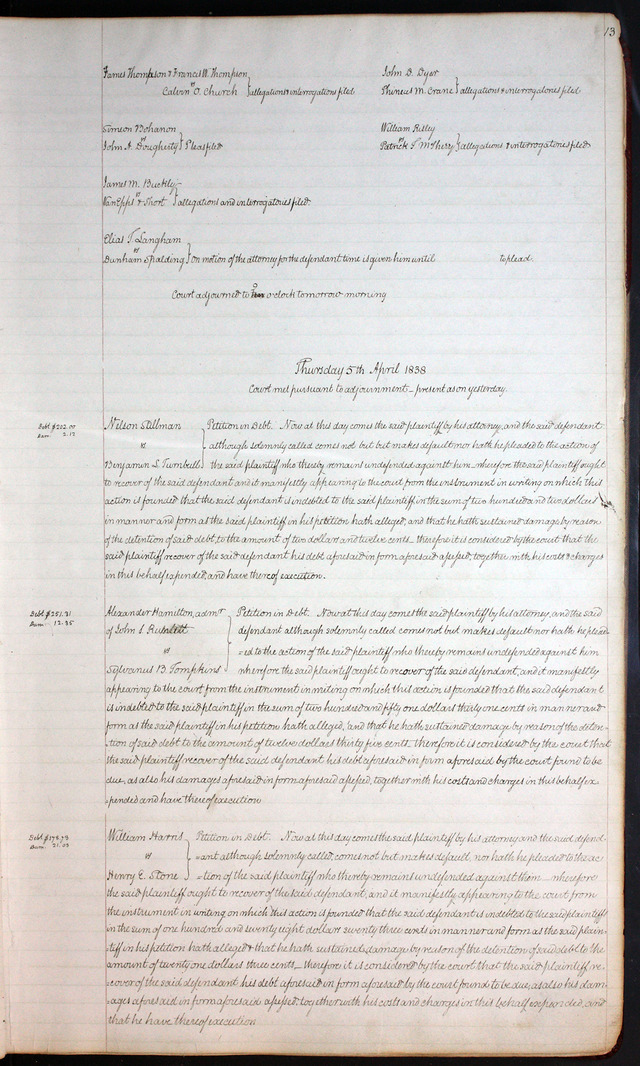 13
James Thompson & Francis W. Thompson
vs
Calvin O. Church } allegations & interrogatories filed
John D. Dyer
vs
Phineas M. Crane } allegations & interrogatories filed
Simeon Bohanon
vs
John A. Dougherty } Pleas filed
William Risley
vs
Patrick T. McSherry } allegations & interrogatories filed
James M. Buckly
vs
Van Epps & Short } allegations and interrogatories filed
Elias T. Langham
vs
Dunham Spalding } On motion of the attorney for the defendant time is given him until to plead.
Court adjourned to o'clock tomorrow morning
Thursday 5th April 1838
Court met pursuant to adjournment – present as on yesterday.
Debt $202.00
Dam 2.12
Nelson Stillman
vs
Benjamin S. Turnbull
Petition in Debt. Now at this day comes the said plaintiff by his attorney, and the said defendant
although solemnly called comes not but but makes default nor hath he pleaded to the action of
the said plaintiff who thereby remains undefended against him – wherefore the said plaintiff ought
to recover of the said defendant and it manifestly appearing to the court from the instrument in writing on which this
action is founded that the said defendant is indebted to the said plaintiff in the sum of two hundred and two dollars
in manner and form as the said plaintiff in his petition hath alleged, and that he hath sustained damage by reason
of the detention of said debt, to the amount of two dollar and twelve cents – therefore it is considered by the court that the
said plaintiff recover of the said defendant his debt aforesaid in form aforesaid assessed, together with his costs & charges
in this behalf expended, and have thereof execution.
Debt $251.31
Dam 12.35
Alexander Hamilton, admr
of John S.
vs
Sylvanus B. Tompkins
Petition in Debt. Now at this day comes the said plaintiff by his attorney, and the said
defendant although solemnly called comes not but makes default nor hath he plead-
-ed to the action of the said plaintiff who thereby remains undefended against him
wherefore the said plaintiff ought to recover of the said defendant, and it manifestly
appearing to the court from the instrument in writing on which this action is founded that the said defendant
is indebted to the said plaintiff in the sum of two hundred and fifty one dollars thirty one cents in manner and
form as the said plaintiff in his petition hath alleged, and that he hath sustained damage by reason of the deten-
-tion of said debt to the amount of twelve dollars thirty five cents. therefore it is considered by the court that
the said plaintiff recover of the said defendant his debt aforesaid in form aforesaid by the court found to be
due, as also his damages aforesaid in form aforesaid assessed, together with his costs and charges in this behalf ex
-pended and have thereof execution
Debt $178.73
Dam 21.03
William Harris
vs
Henry E. Stone
Petition in Debt. Now at this day comes the said plaintiff by his attorney and the said defend-
-ant although solemnly called, comes not but makes default, nor hath he pleaded to the ac
-tion of the said plaintiff who thereby remains undefended against them – wherefore
the said plaintiff ought to recover of the said defendant, and it manifestly appearing to the court from
the instrument in writing on which this action is founded that the said defendant is indebted to the said plaintiff
in the sum of one hundred and seventy eight dollar seventy three cents in manner and form as the said plain-
tiff in his petition hath alleged & that he hath sustained damage by reason of the detention of said debt to the
amount of twenty one dollars three cents – therefore it is considered by the court that the said plaintiff re-
-cover of the said defendant his debt aforesaid in form aforesaid by the court found to be due, as also his dam-
-ages aforesaid in form aforesaid assessed, together with his costs and charges in this behalf expended, and
that he have thereof execution